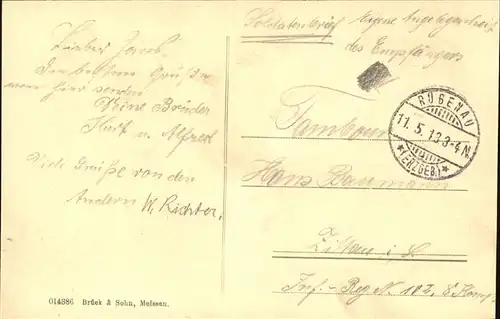 Soldatenbrief Eigene Angelegenheit
des Empfängers
Lieber Jacob.
Die besten Grüße
von hier senden
Deine Brüder
Kurt u. Alfred
Viele Grüße von den
Andern W. Richter.
RÜBENAU
11.5.13.3-4N.
*(ERZGEB.)*
Tambour
Hans Baumann
Zittau i. S.
Inf.-Reg N. 102, 8 Komp.
014386 Brück & Sohn, Meissen.